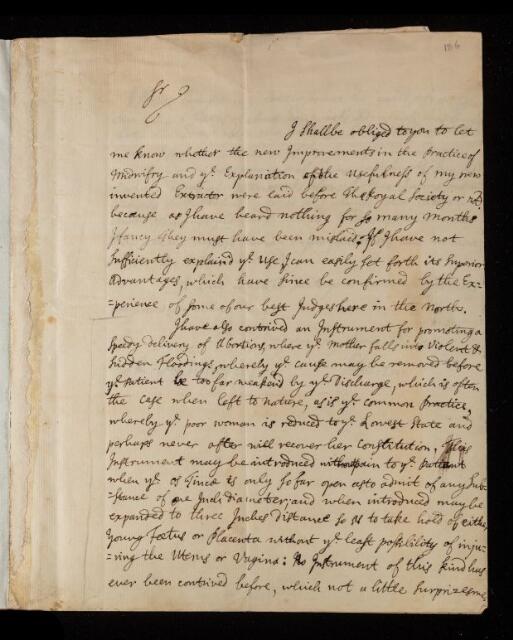 186
Sr
I shall be obliged to you to let
me know whether the new Improvements in the Practice of
Midwifry and ye. Explanation of the Usefulness of my new
invented Extractr were laid before the Royal Society or not
because as I have heard nothing for so many Months
I fancy they must have been mislaid; If I have not
sufficiently explained ye Use I can easily set forth its Superior
Advantages, which have since be confirmed by the Ex-
=perience of some of our best Judges here in the North.
I have also contrived an Instrument for promoting a
speedy delivery of Abortions, where ye Mother falls into Violent &
sudden Floodings, whereby ye cause may be removed before
ye patient be too far weakend by ye Discharge, which is often
the case when left to nature, as is ye common Practice,
whereby ye poor woman is reduced to ye Lowest State and
perhaps never after will recover her Constitution; This
Instrument may be introduced without pain to ye Patient
when ye os Tincæ is only so far open as to admit of any Sub-
stance of one Inch diameter; and when introduced may be
expanded to three Inches distance so as to take hold of either
young Fœtus or Placenta without ye least possibility of inju-
=ring the Uterus or Vagina: No Instrument of this kind has
ever been contrived before, which not a little surprizes me